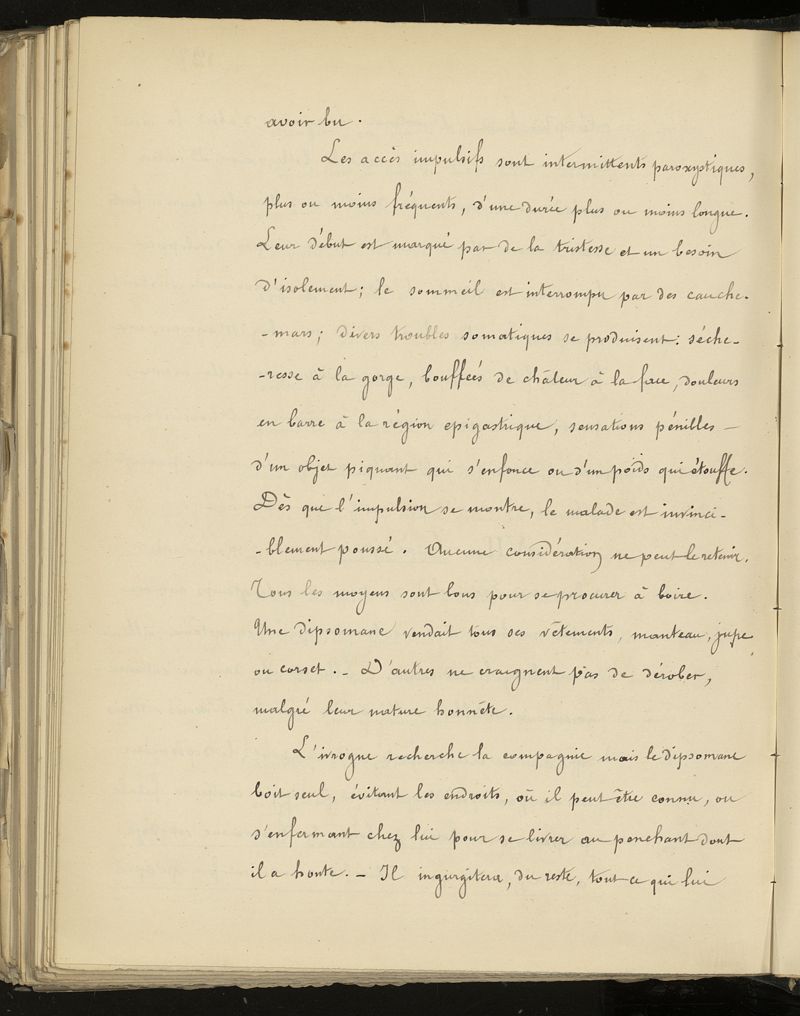 avoir bu.
Les accès impulsifs sont intermittents paroxystiques,
plus ou moins fréquents, d'une durée plus ou moins longue.
Leur début est marqué par de la tristesse et un besoin
d'isolement; le sommeil est interrompu par des cauche-
-mars; divers troubles somatiques se produisent: séche-
-resse à la gorge, bouffées de chaleur à la face, douleurs
en barre à la région epigastrique, sensations pénibles -
d'un objet piquant qui s'enfonce ou d'un poids qui étouffe.
Dès que l'impulsion se montre, le malade est invinci-
-blement poussé. Aucune considération ne peut le retenir.
Tous les moyens sont bons pour se procurer à boire.
Une dipsomane vendait tous ses vêtements, manteau, jupe
ou corset. - D'autres ne craignent pas de dérober,
malgré leur nature honnête.
L'ivrogne recherche la compagnie mais le dipsomane
boit seul, évitant les endroits, où il peut être connu, ou
s'enfermant chez lui pour se livrer au penchant dont
il a honte. - Il ingurgitera, du reste, tout ce qui lui